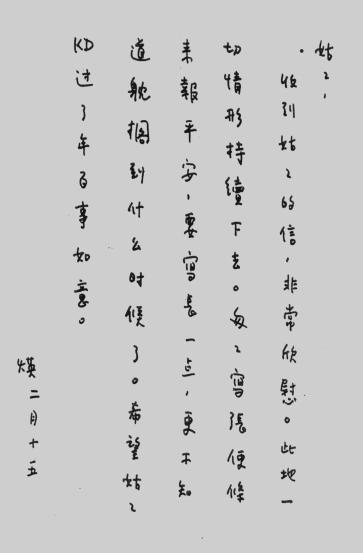 姑々，
收到姑々的信，非常欣慰。此地一
切情形持續下去。匆々寫張便條
来報平安，要寫長一点，更不知
道躭擱到什么时候了。希望姑々
KD过了年百事如意。
煐 二月十五